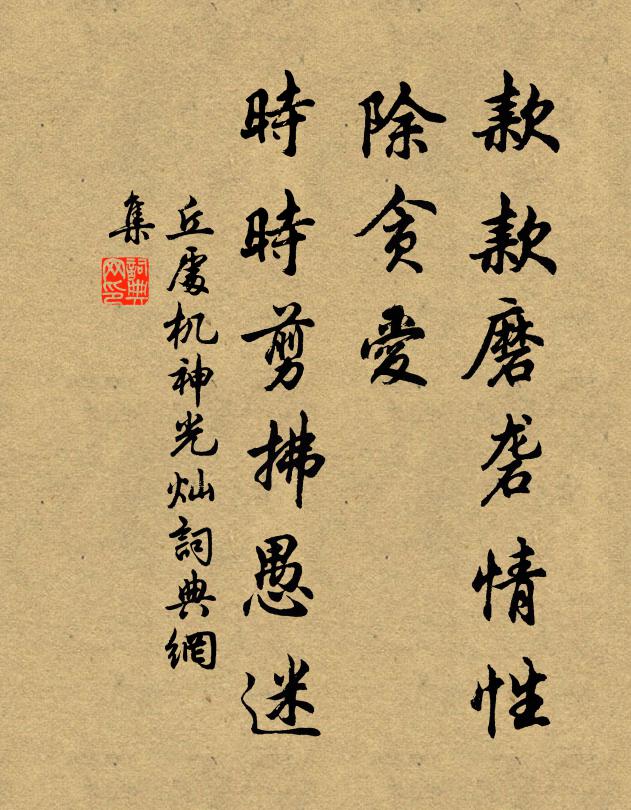 款款磨砻情性
除貪愛
時時剪拂愚迷
丘處机神光灿詞典網
集
詞典
网印